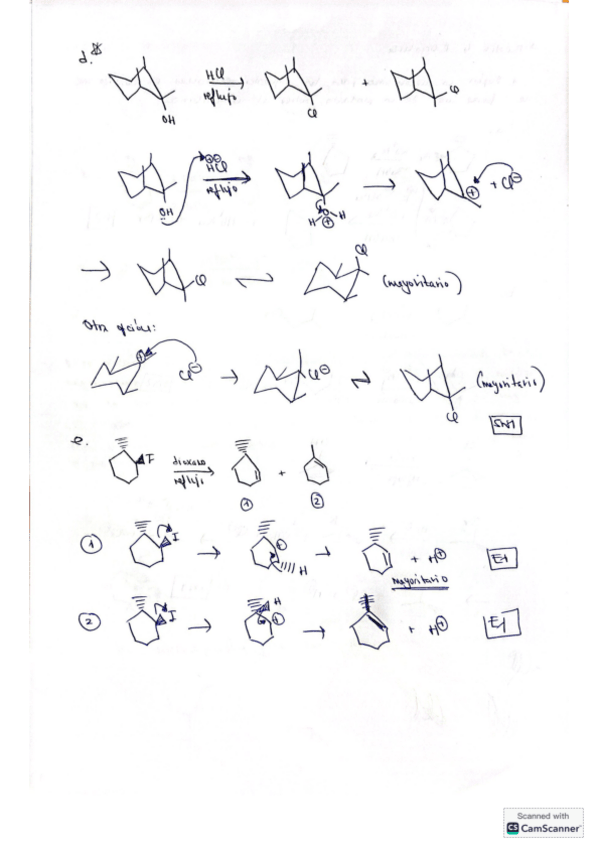 d.*
HCl
reflujo
+
OH
Cl
Cl
HCl
reflujo
OH
H O H
⊕
⊕ + Cl⊖
Cl
Cl
(mayoritario)
Otra opción:
⊕
Cl⊖
Cl⊖
(mayoritario)
Cl
SN1
e.
I
dioxano
reflujo
+
① ②
① I ⊕ H + H⊕ E1
mayoritario
② I H ⊕ + H⊕ E1
Scanned with
CS CamScanner